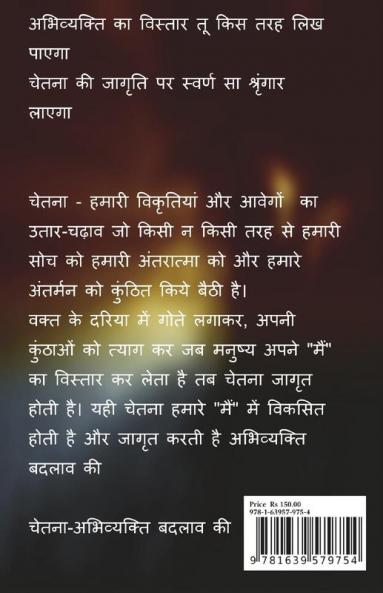 अभिव्यक्ति का विस्तार तू किस तरह लिख
पाएगा
चेतना की जागृति पर स्वर्ण सा श्रृंगार
लाएगा
चेतना - हमारी विकृतियां और आवेगों का
उतार-चढ़ाव जो किसी न किसी तरह से हमारी
सोच को हमारी अंतरात्मा को और हमारे
अंतर्मन को कुंठित किये बैठी है।
वक्त के दरिया में गोते लगाकर, अपनी
कुंठाओं को त्याग कर जब मनुष्य अपने "मैं"
का विस्तार कर लेता है तब चेतना जागृत
होती है। यही चेतना हमारे "मैं" में विकसित
होती है और जागृत करती है अभिव्यक्ति
बदलाव की
चेतना-अभिव्यक्ति बदलाव की
Price Rs 150.00
978-1-63957-975-4
9 781639 579754